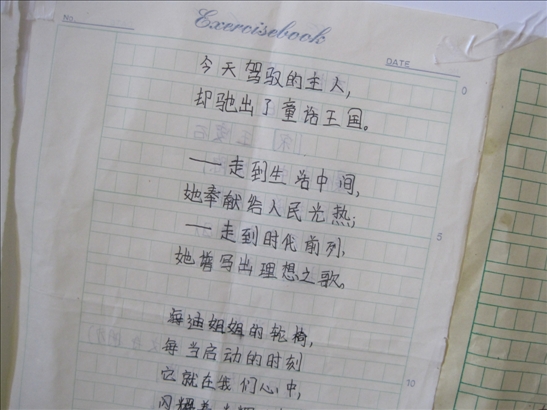 Exercisebook
No.
DATE
今天驾驭的主人,
却驰出了童话王国。
——走到生活中间,
她奉献给人民光热;
——走到时代前列,
她谱写出理想之歌。
海迪姐姐的轮椅,
每当启动的时刻
它就在我们心中,
闪耀着
0
5
10